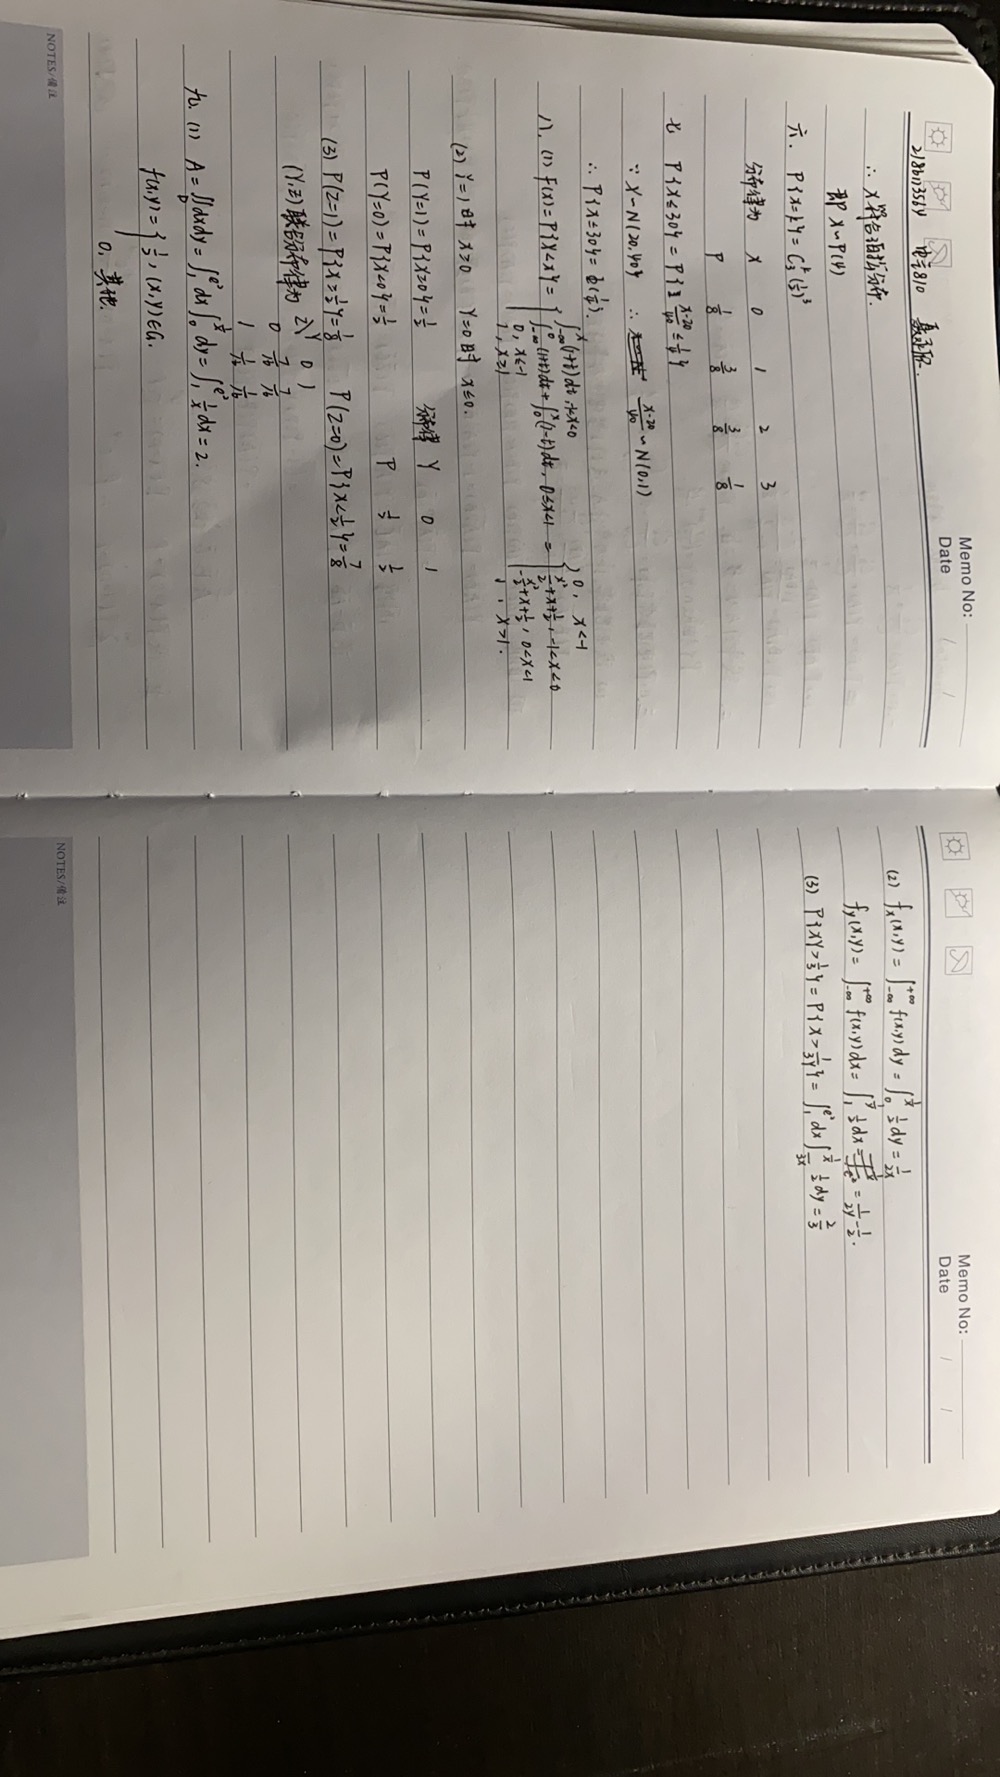 Memo No:
Date / /
2186113564 电子810
∴ X符合泊松分布.
即 X~P(4)
六. P{X=k}=C₃ᵏ(1/2)³
分布律为 X 0 1 2 3
P 1/8 3/8 3/8 1/8
七 P{X≤30}=P{(X-20)/40≤1/4}
∵ X~N(20,40²) ∴ (X-20)/40~N(0,1)
∴ P{X≤30}=Φ(1/4).
八. (1) F(x)=P{X<x}= { ∫_{-∞}^{x}(1+t)dt, -1<x<0
∫_{-∞}^{0}(1+t)dt+∫_{0}^{x}(1-t)dt, 0≤x<1
0, x≤-1
1, x≥1
= { 0, x<-1
x²/2+x+1/2, -1<x<0
-x²/2+x+1/2, 0<x<1
1, x>1.
(2) Y=1时 X>0 Y=0时 X≤0.
P(Y=1)=P{X>0}=1/2 分布律 Y 0 1
P(Y=0)=P{X<0}=1/2 P 1/2 1/2
(3) P(Z=1)=P{X>1/2}=1/8 P(Z=0)=P{X<1/2}=7/8
(Y,Z)联合分布律为 Z\Y 0 1
0 7/16 7/16
1 1/16 1/16
九. (1) A=∬_D dxdy=∫_1^{e²}dx∫_0^{1/x}dy=∫_1^{e²}1/x dx=2.
f(x,y)={ 1/2, (x,y)∈G.
0, 其他.
NOTES/备注
Memo No:
Date / /
(2) f_X(x,y)=∫_{-∞}^{+∞}f(x,y)dy=∫_0^{1/x}1/2dy=1/2x
f_Y(x,y)=∫_{-∞}^{+∞}f(x,y)dx=∫_1^{1/y}1/2dx=1/2y-1/2.
(3) P{XY>1/3}=P{X>1/3Y}=∫_1^{e²}dx∫_{1/3x}^{1/x}1/2dy=2/3
NOTES/备注